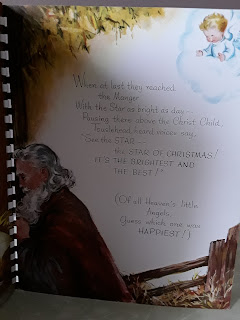 When at last they reached
the Manger
With the Star as bright as day—
Pausing there above the Christ Child,
Touslehead heard voices say,
"See the STAR—
the STAR OF CHRISTMAS!
IT'S THE BRIGHTEST AND
THE BEST!"
(Of all Heaven's little
Angels,
Guess which one was
HAPPIEST!)